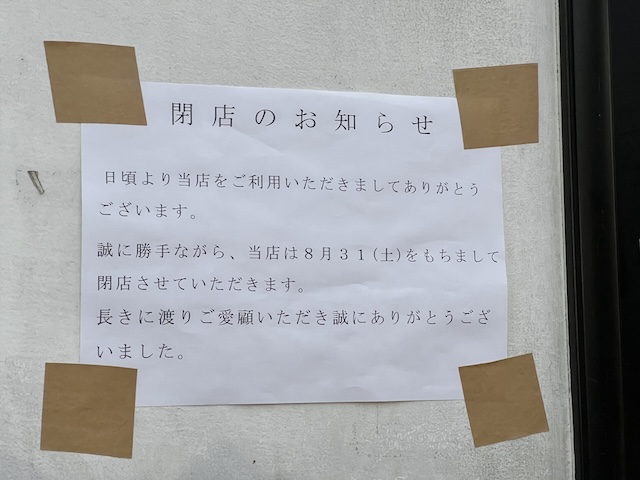 閉店のお知らせ
日頃より当店をご利用いただきましてありがとう
ございます。
誠に勝手ながら、当店は８月３１(土)をもちまして
閉店させていただきます。
長きに渡りご愛顧いただき誠にありがとうござ
いました。